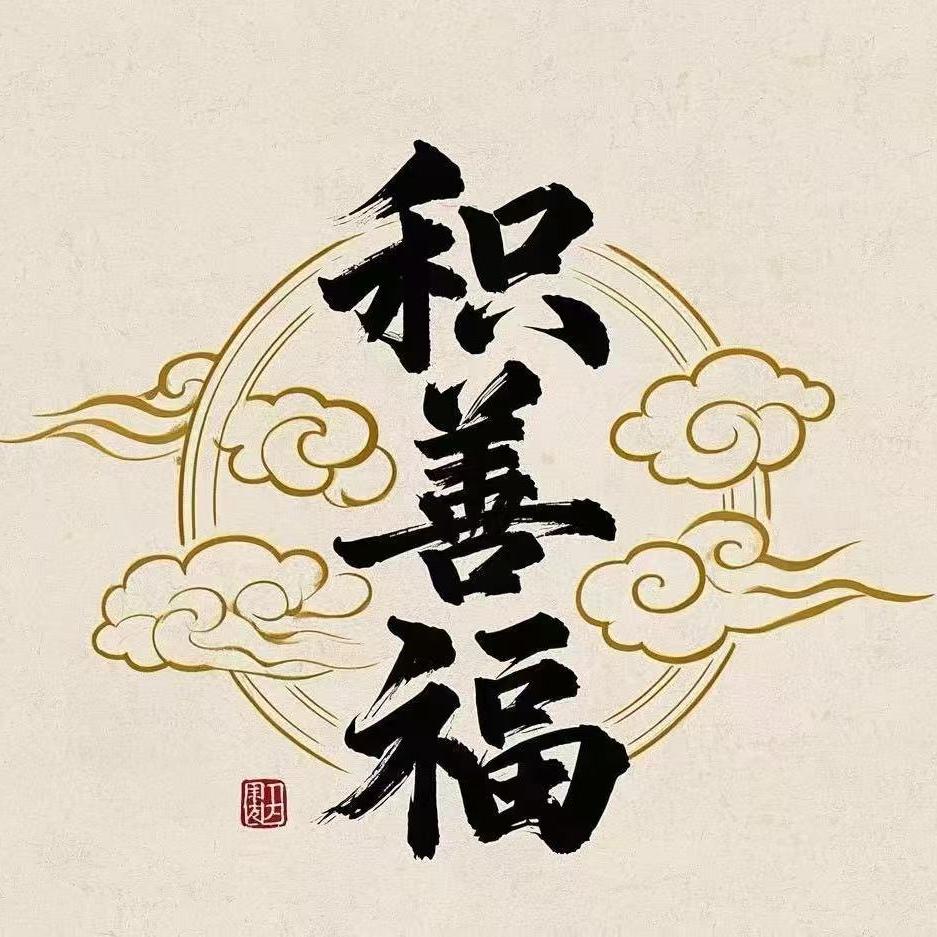 积善福